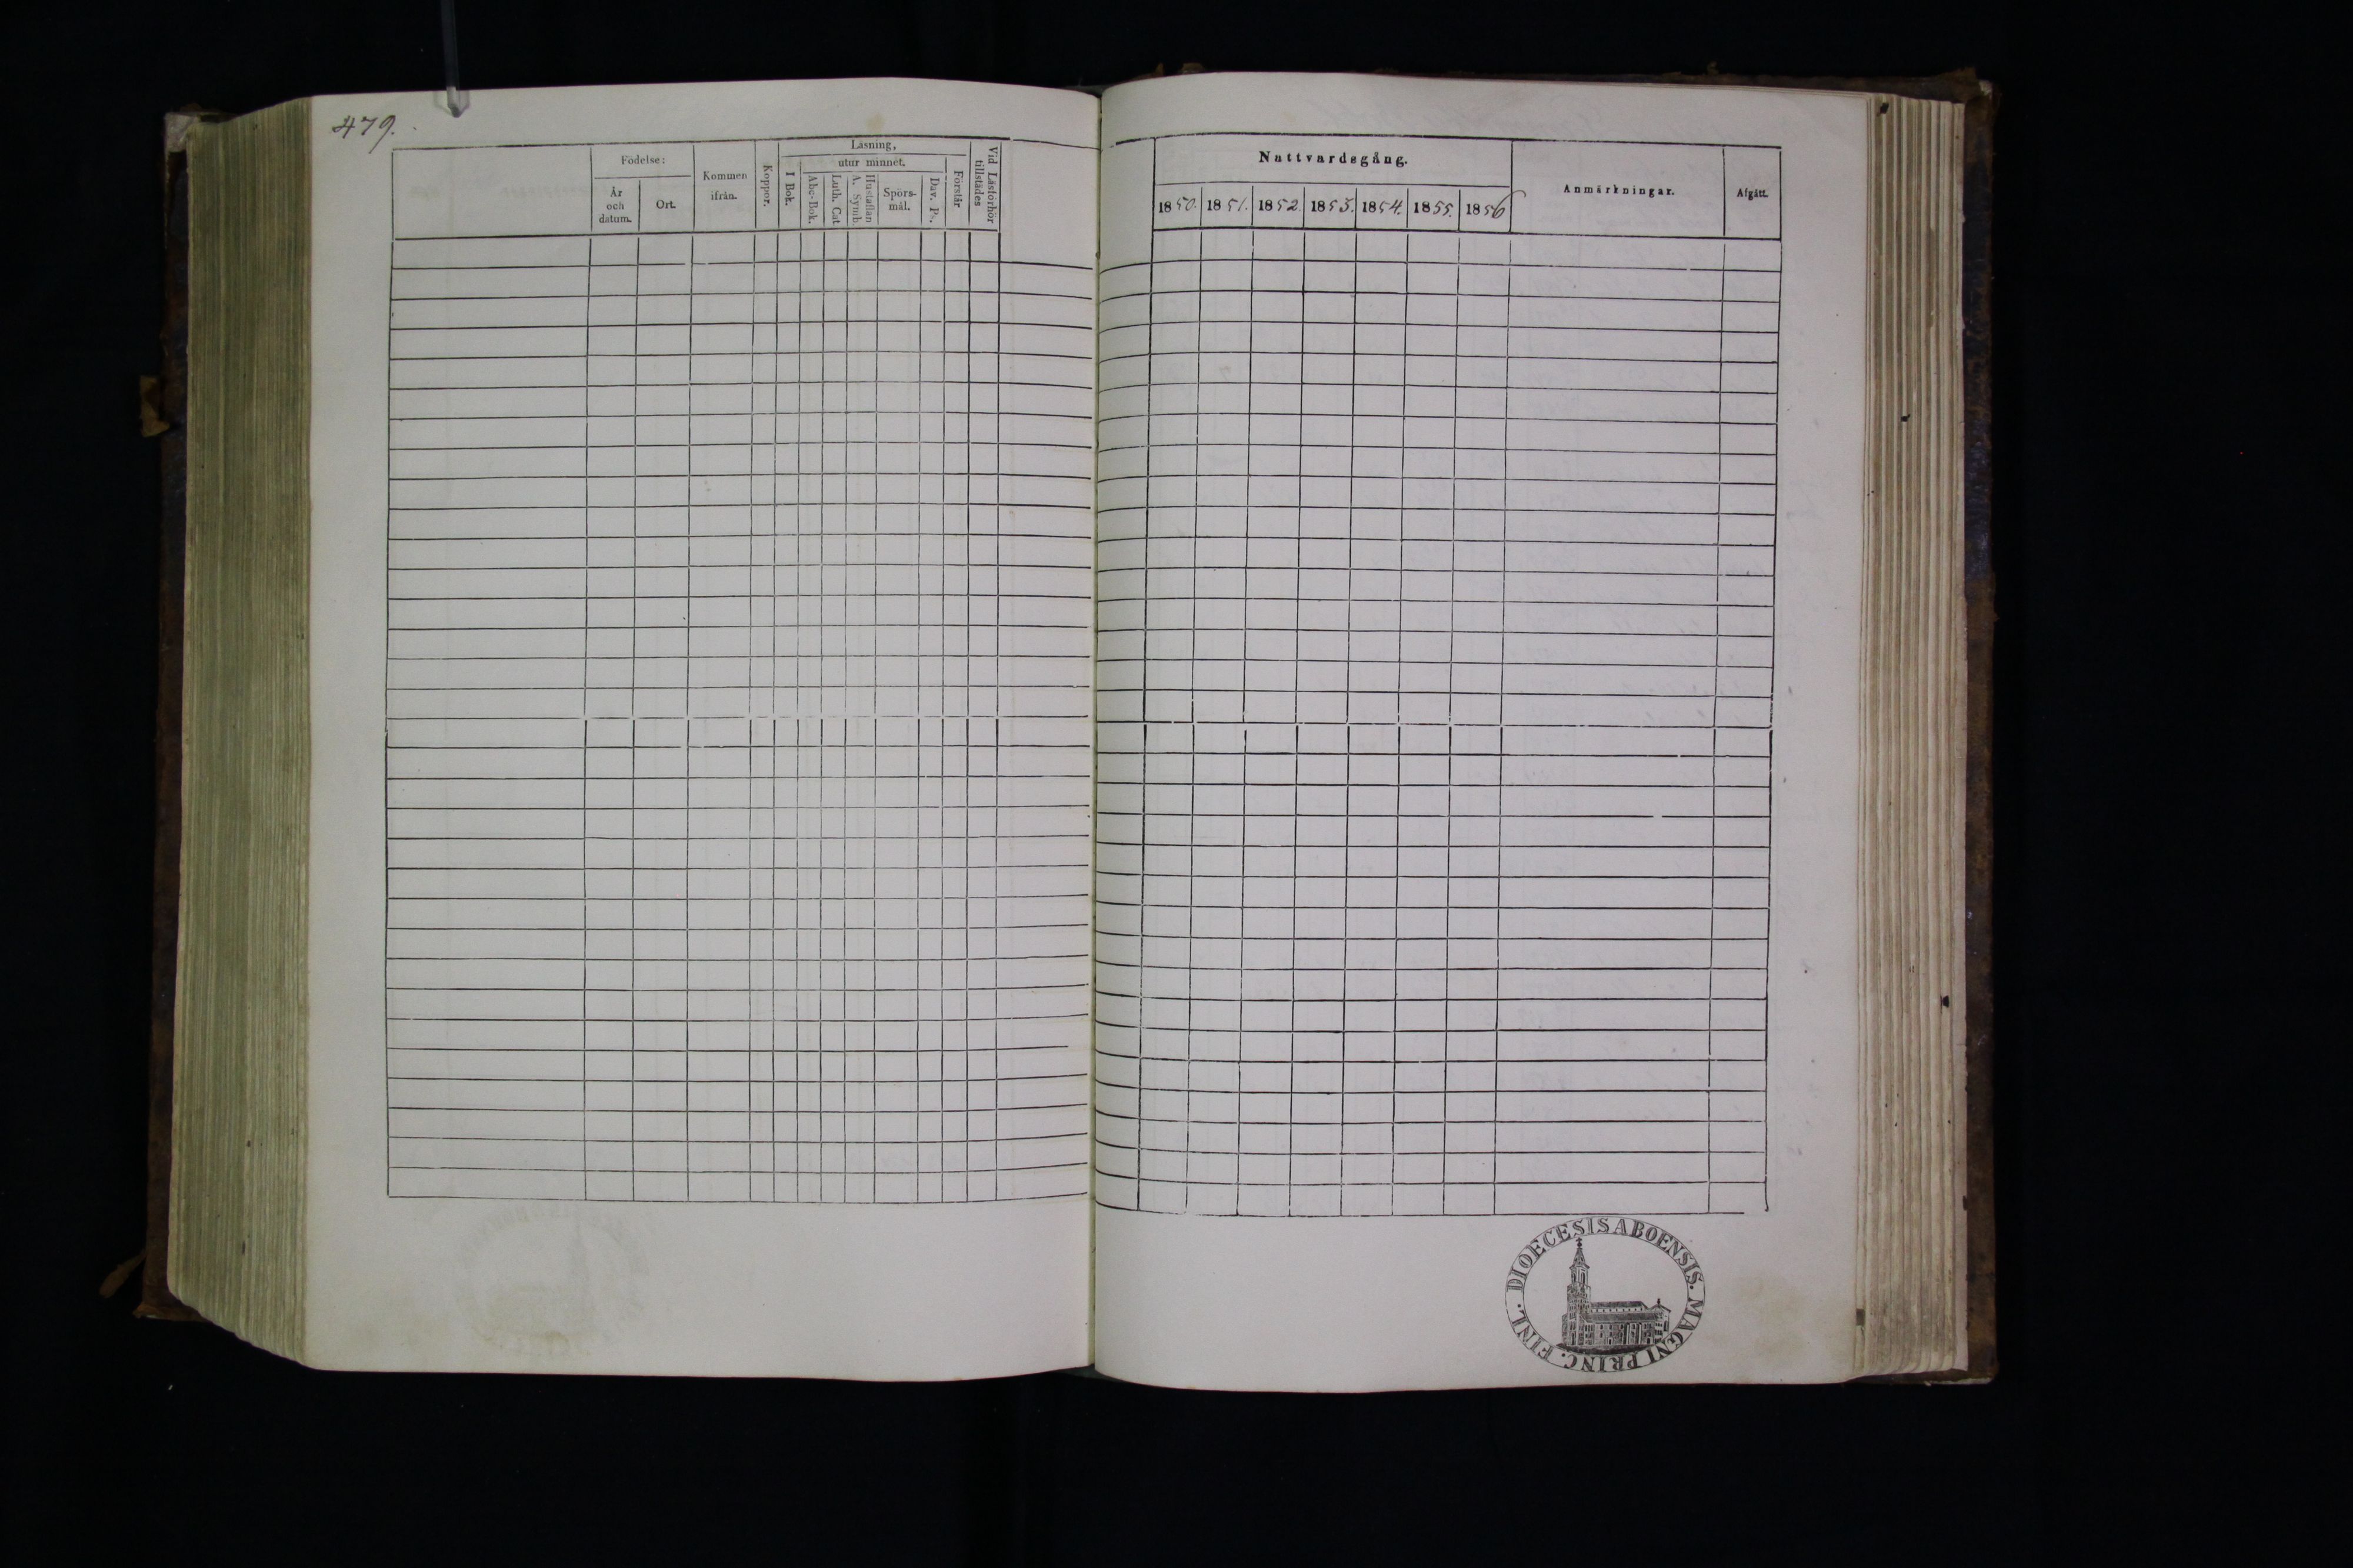 479.
Födelse:
År och datum.
Ort.
Kommen ifrån.
Koppor.
Läsning,
I Bok.
utur minnet.
Abc-Bok.
Luth. Cat
A. Symb.
Hustaflan
Spörs-mål.
Dav. Ps.
Förstår
Vid Läsförhör tillstädes
Nattvardsgång.
1850. 1851. 1852. 1853. 1854. 1855. 1856
Anmärkningar.
Afgått.
DIOECESIS ABOENSIS. MAGNI PRINC. FINL.